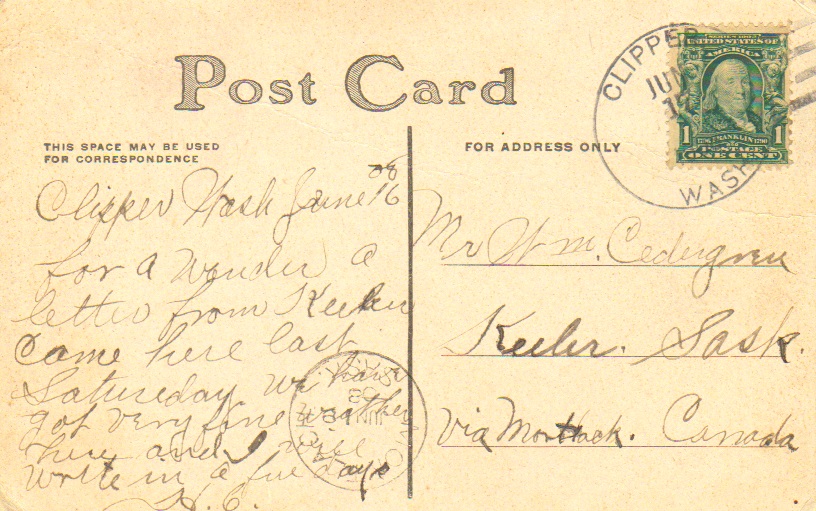 Post Card
THIS SPACE MAY BE USED
FOR CORRESPONDENCE
FOR ADDRESS ONLY
CLIPPER
JUN
WASH
SERIES 1902
UNITED STATES OF
AMERICA
1 1706 FRANKLIN 1790 1
POSTAGE
ONE CENT
08
Clipper Wash June 16
for a wonder a
letter from Keeler
Came here last
Saturday we have
got very fine weather
here and I will
write in a few days
H. C.
Mr Wm. Cedergren
Keeler. Sask.
via Mortlach. Canada
SASK
JUN
08